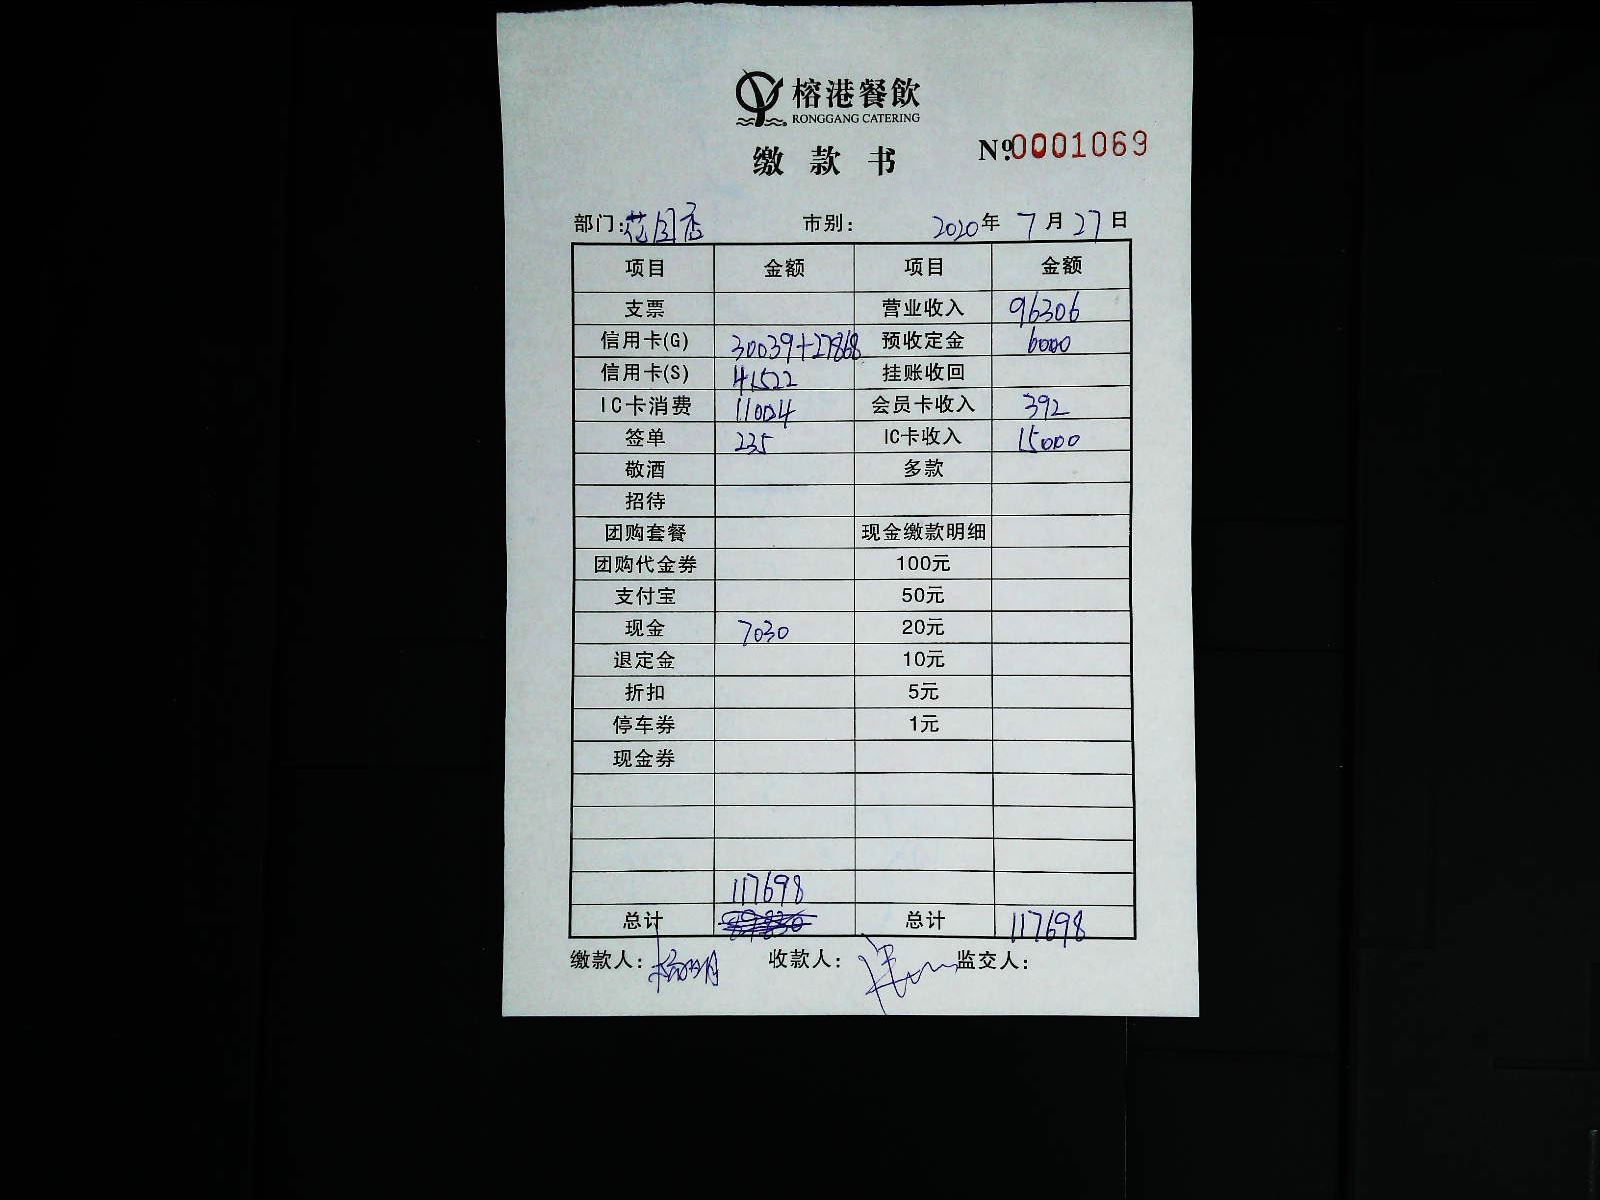 榕港餐飲
RONGGANG CATERING
缴款书
№0001069
部门:花园店 市别: 2020年 7月27日
项目 金额 项目 金额
支票 营业收入 96306
信用卡(G) 30039+27868 预收定金 6000
信用卡(S) 41522 挂账收回
IC卡消费 11004 会员卡收入 392
签单 235 IC卡收入 15000
敬酒 多款
招待
团购套餐 现金缴款明细
团购代金券 100元
支付宝 50元
现金 7030 20元
退定金 10元
折扣 5元
停车券 1元
现金券
117698
总计 总计 117698
缴款人: 收款人: 监交人: